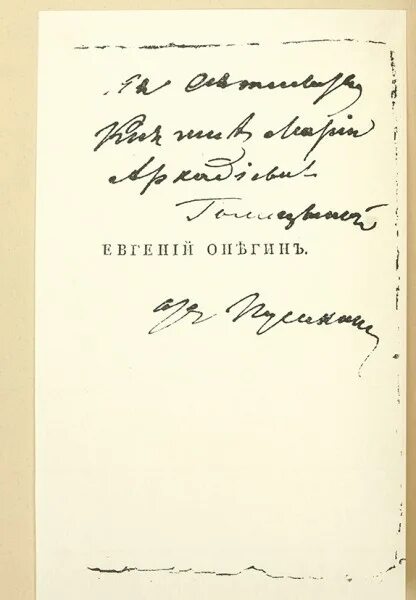 Ея Сіятельству
Княгинѣ Маріи
Аркадіевнѣ
Голицыной
ЕВГЕНІЙ ОНѢГИНЪ.
отъ Пушкина